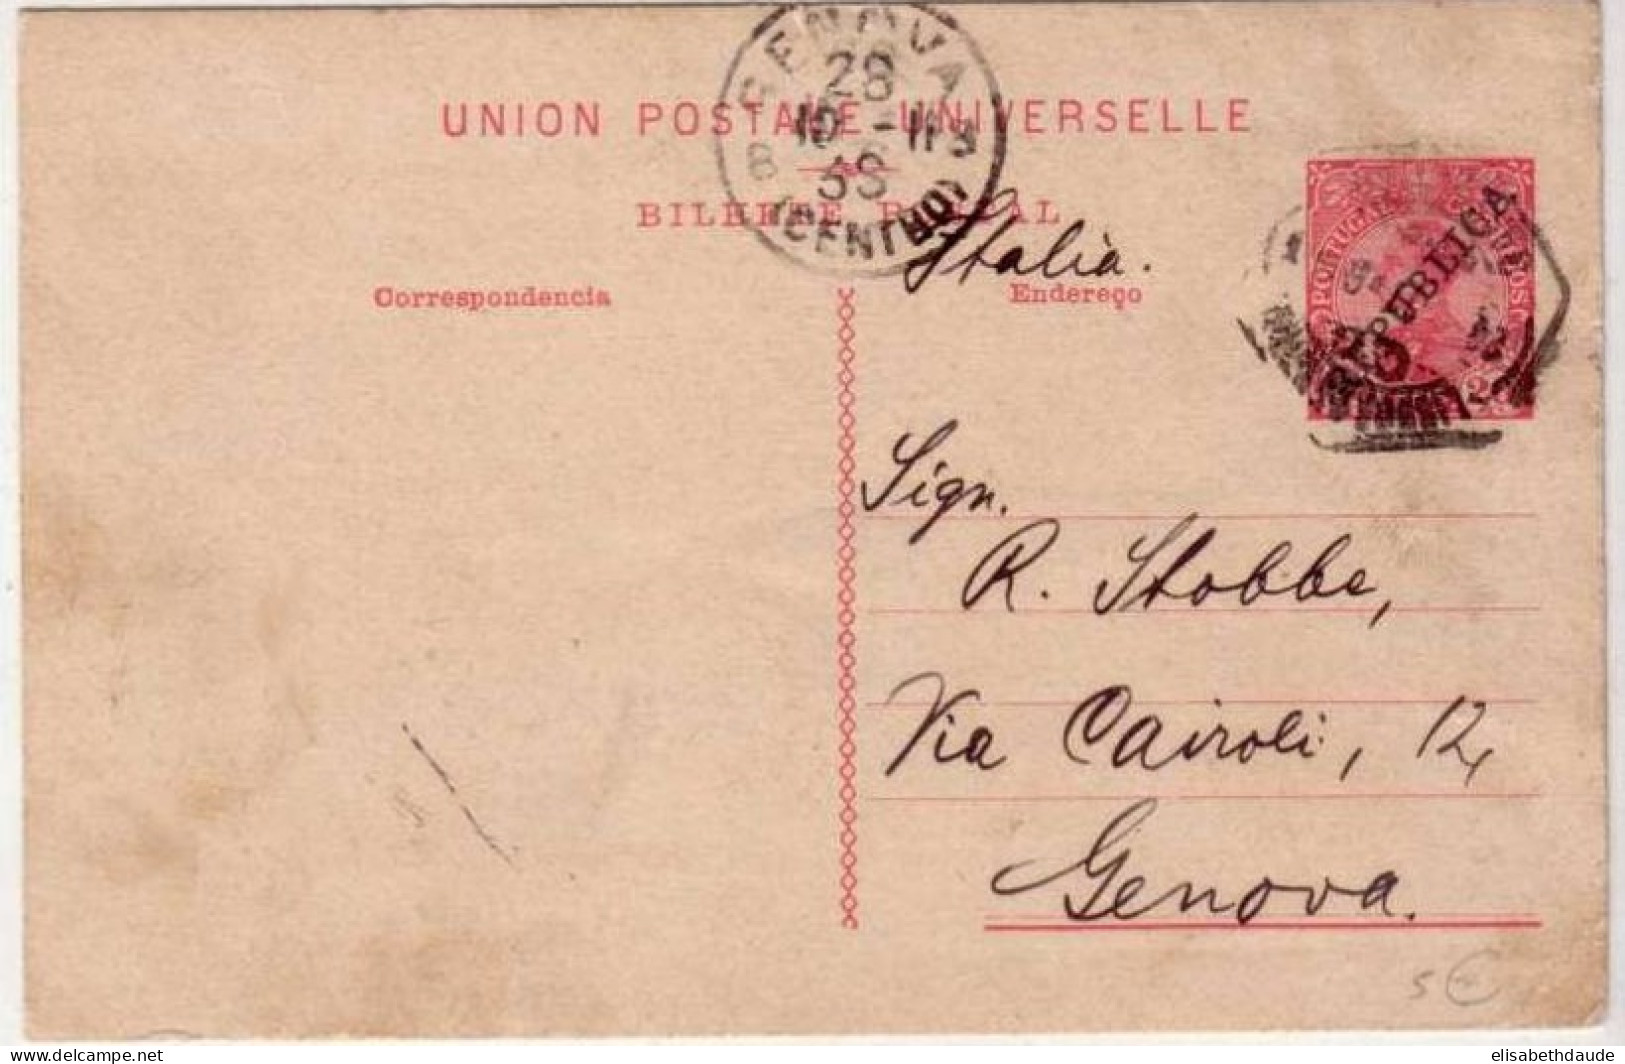 UNION POSTALE UNIVERSELLE
BILHETE POSTAL
GENOVA
28
10 - 11 S
3S
(CENTRO)
Correspondencia
Italia.
Endereço
PORTUGAL
REPUBLICA
25
Sign.
R. Stobbe,
Via Cairoli, 12,
Genova.
delcampe.net
elisabethdaude